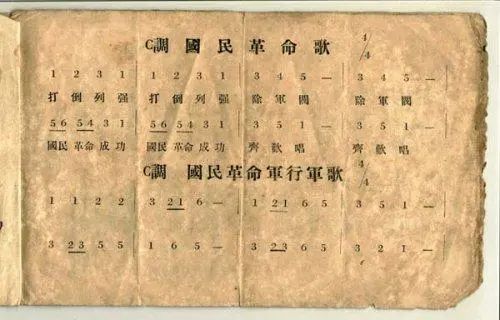 C調 國民革命歌 4/4
1 2 3 1 | 1 2 3 1 | 3 4 5 — | 3 4 5 —
打倒列强 打倒列强 除軍閥 除軍閥
56 54 3 1 | 56 54 3 1 | 3 5 1 — | 3 5 1 —
國民革命成功 國民革命成功 齊歡唱 齊歡唱
C調 國民革命軍行軍歌 4/4
1 1 2 2 | 3 21 6 — | 1 21 6 5 | 3 5 1 —
3 23 5 5 | 1 6 5 — | 3 23 6 5 | 3 2 1 —